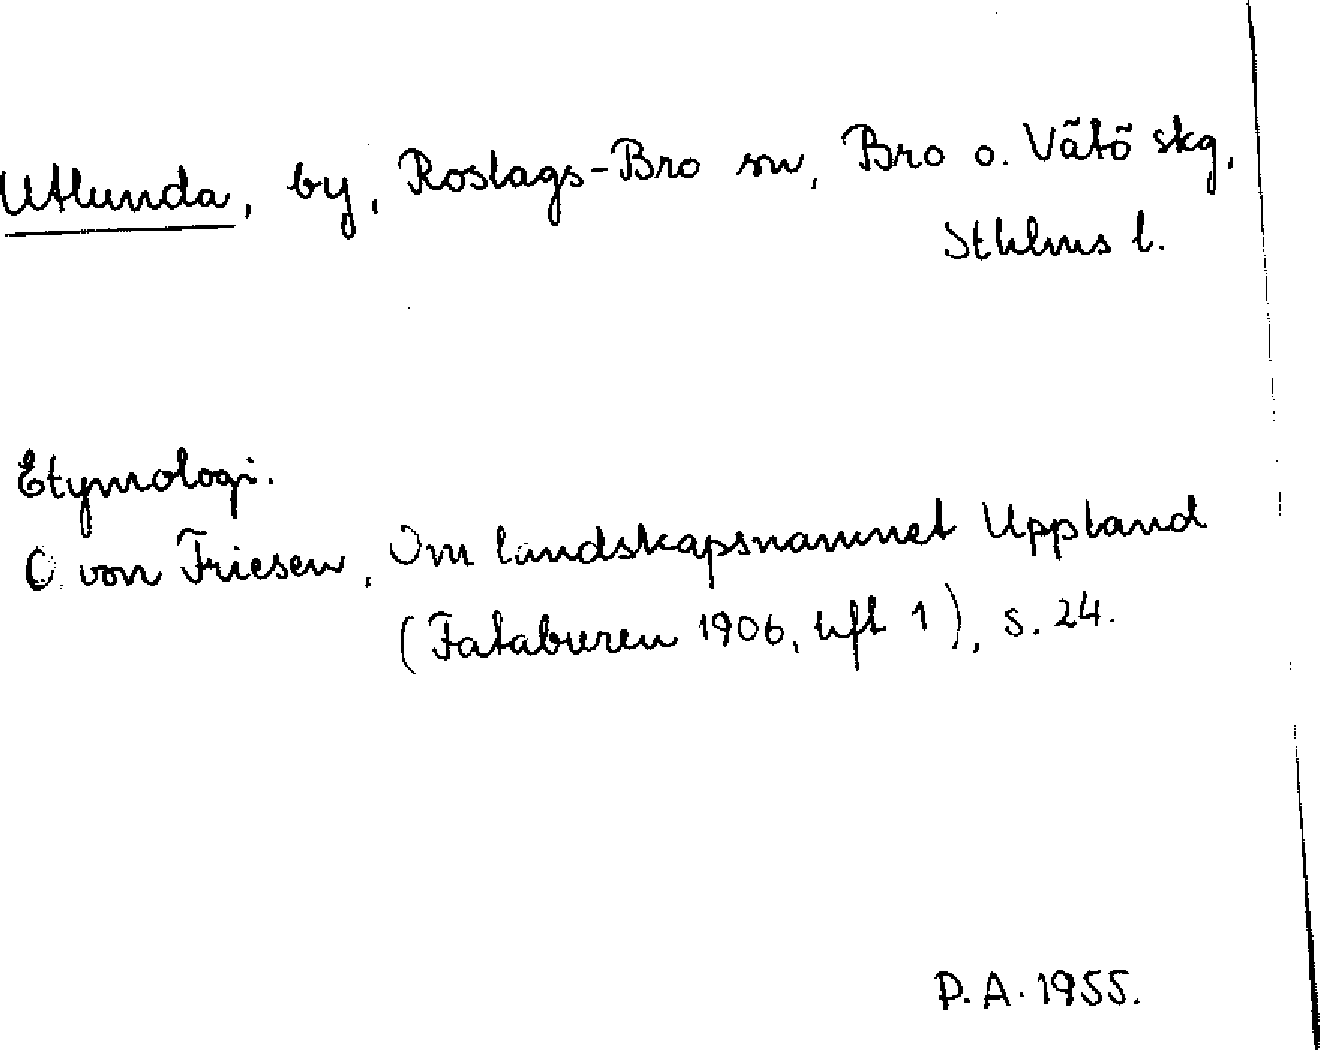 Utlunda, by, Roslags-Bro sn, Bro o. Vätö skg,
Sthlms l.
Etymologi.
O. von Friesen, Om landskapsnamnet Uppland
(Fataburen 1906, hft 1), s. 24.
P. A. 1955.